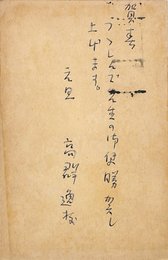 賀春
つゝしんで先生の御健勝賀し
上げます。
元旦
高群逸枝